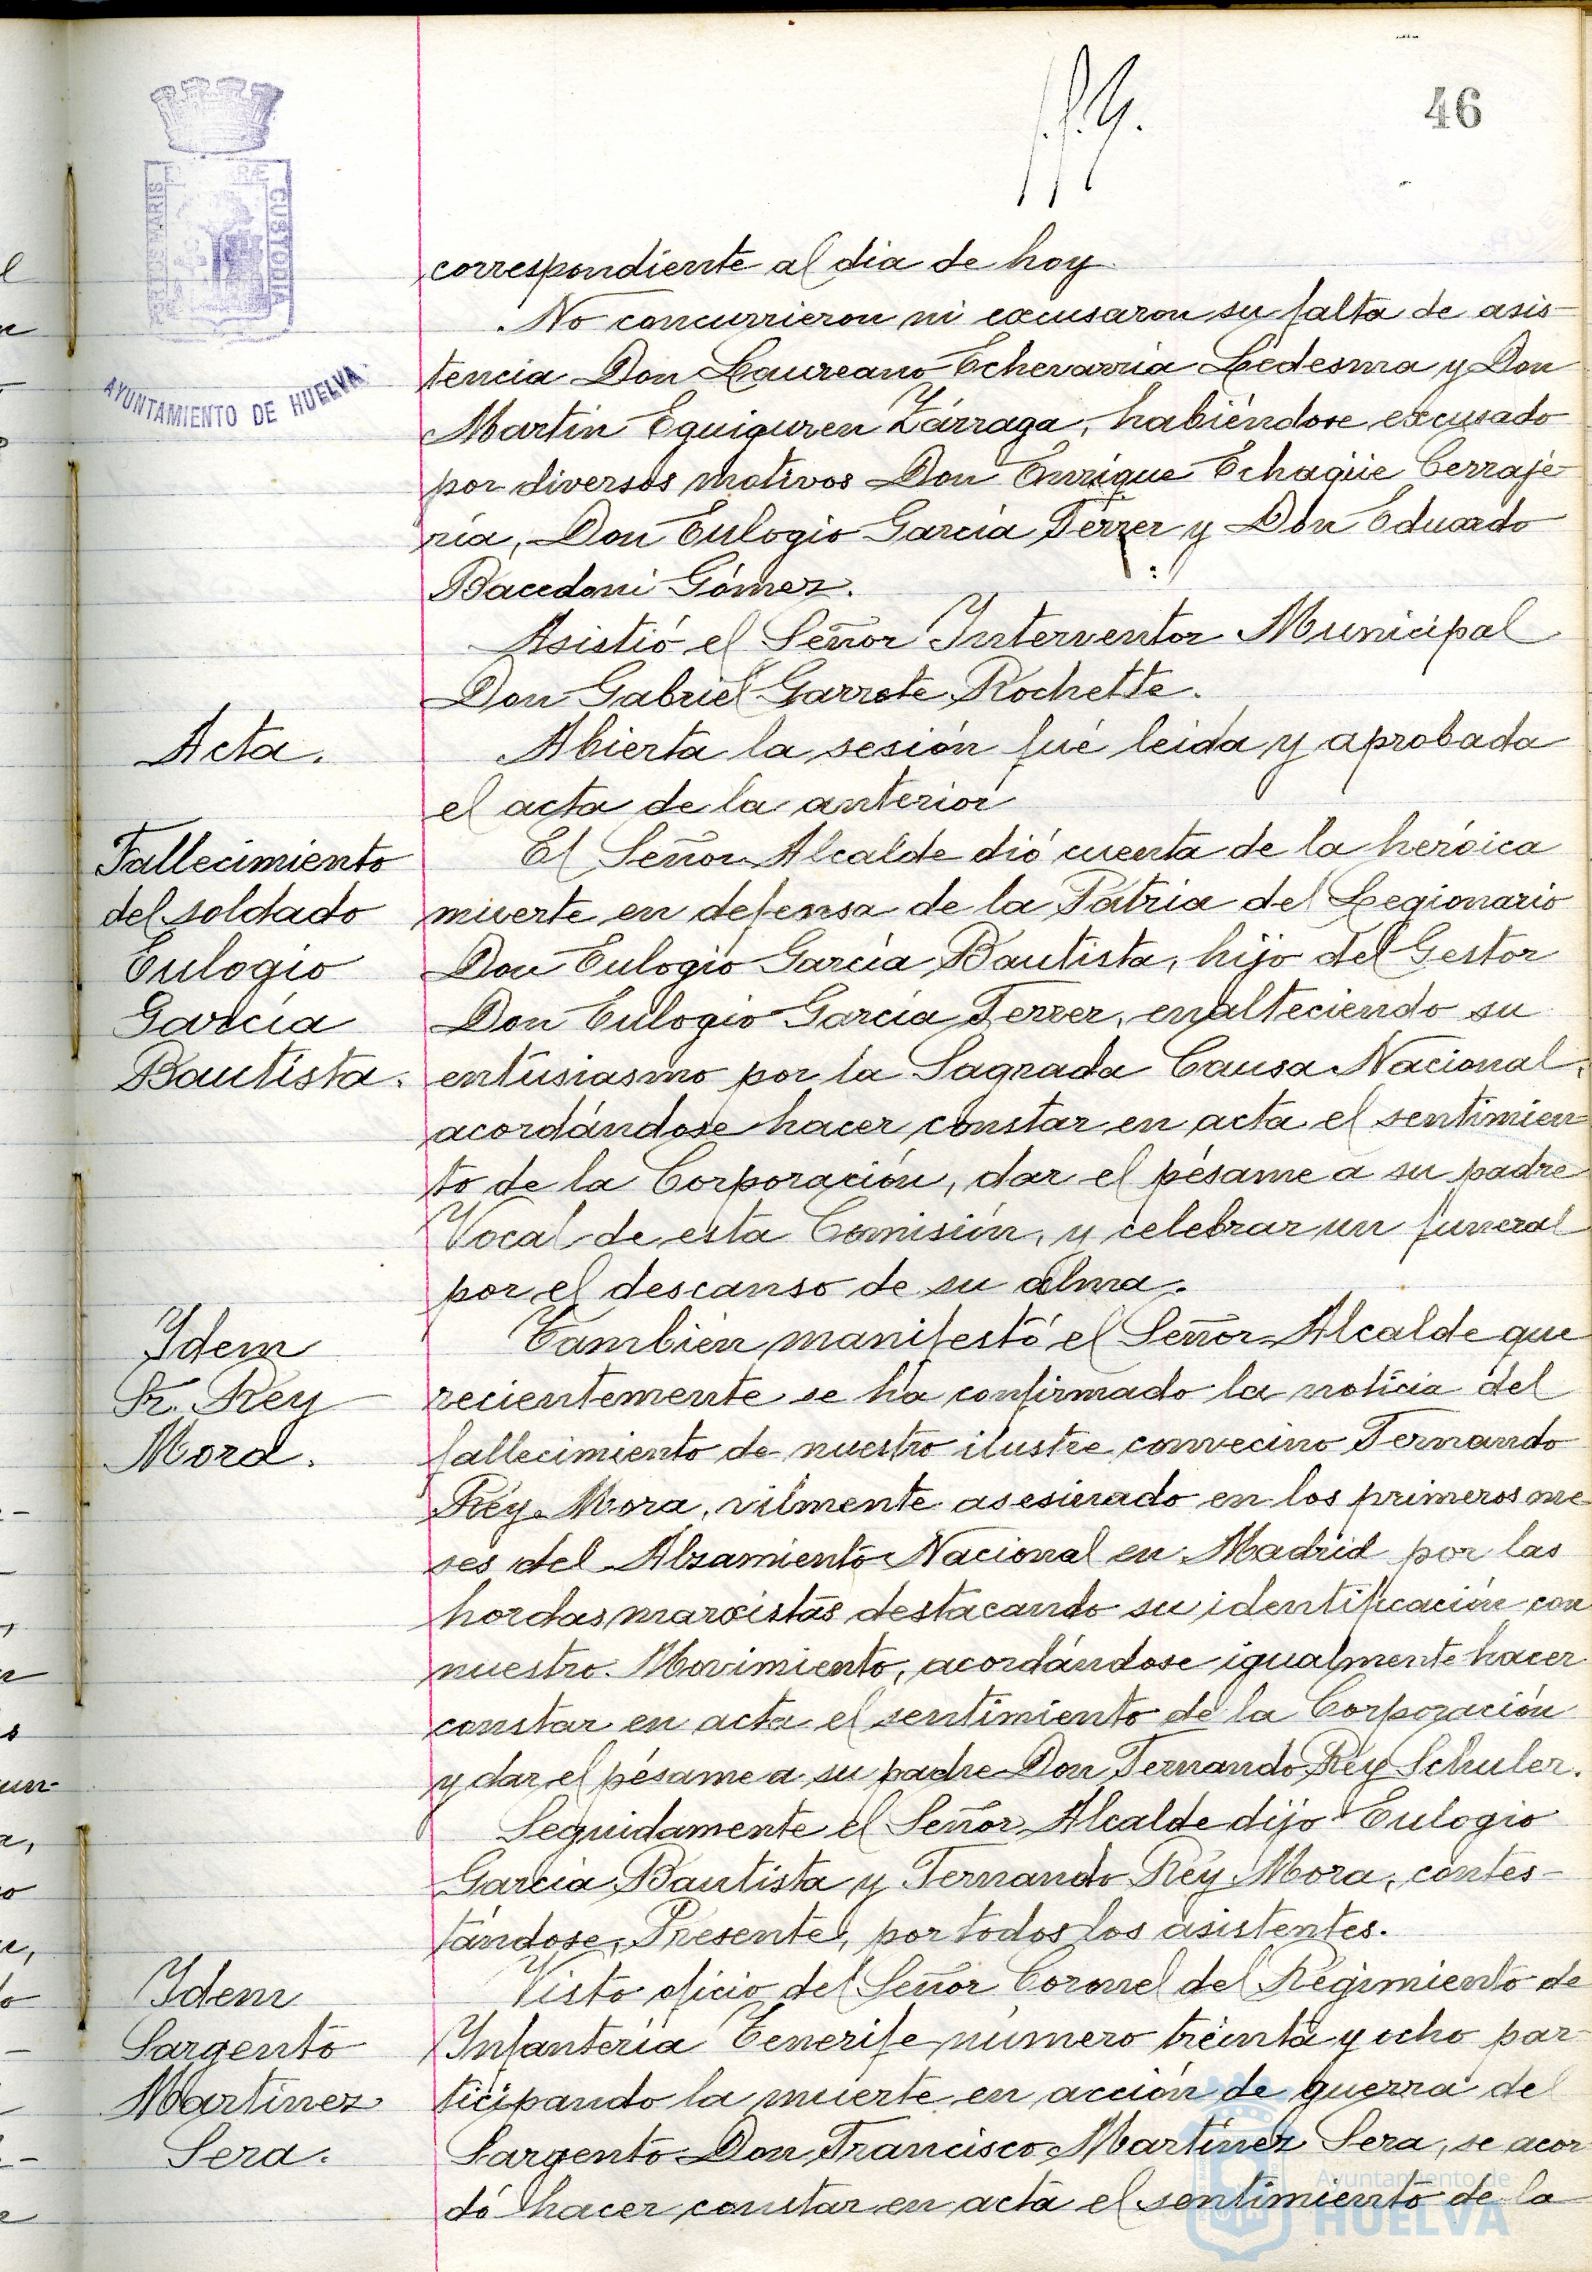 46
PORTUS MARIS
CUSTODIA
AYUNTAMIENTO DE HUELVA
correspondiente al dia de hoy.
No concurrieron ni excusaron su falta de asis-
tencia Don Laureano Echevarria Ledesma y Don
Martin Eguiguren Zárraga, habiéndose excusado
por diversos motivos Don Enrique Echagüe Cerraje-
ria, Don Eulogio Garcia Ferrer y Don Eduardo
Bacedoni Gómez.
Asistió el Señor Interventor Municipal
Don Gabriel Garrote Rochette.
Acta.
Abierta la sesión fué leida y aprobada
el acta de la anterior
Fallecimiento
del soldado
Eulogio
Garcia
Bautista.
El Señor Alcalde dió cuenta de la heróica
muerte en defensa de la Patria del Legionario
Don Eulogio Garcia Bautista, hijo del Gestor
Don Eulogio Garcia Ferrer, enalteciendo su
entusiasmo por la Sagrada Causa Nacional,
acordándose hacer constar en acta el sentimien-
to de la Corporación, dar el pésame a su padre
Vocal de esta Comisión, y celebrar un funeral
por el descanso de su alma.
Idem
Sr. Rey
Mora.
También manifestó el Señor Alcalde que
recientemente se ha confirmado la noticia del
fallecimiento de nuestro ilustre convecino Fernando
Rey Mora, vilmente asesinado en los primeros me-
ses del Alzamiento Nacional en Madrid por las
hordas marxistas destacando su identificación con
nuestro Movimiento, acordándose igualmente hacer
constar en acta el sentimiento de la Corporación
y dar el pésame a su padre Don Fernando Rey Schuler.
Seguidamente el Señor Alcalde dijo Eulogio
Garcia Bautista y Fernando Rey Mora, contes-
tándose, Presente, por todos los asistentes.
Idem
Sargento
Martinez
Sera.
Visto oficio del Señor Coronel del Regimiento de
Infanteria Tenerife número treinta y ocho par-
ticipando la muerte en acción de guerra del
Sargento Don Francisco Martinez Sera, se acor-
dó hacer constar en acta el sentimiento de la
Ayuntamiento de
HUELVA